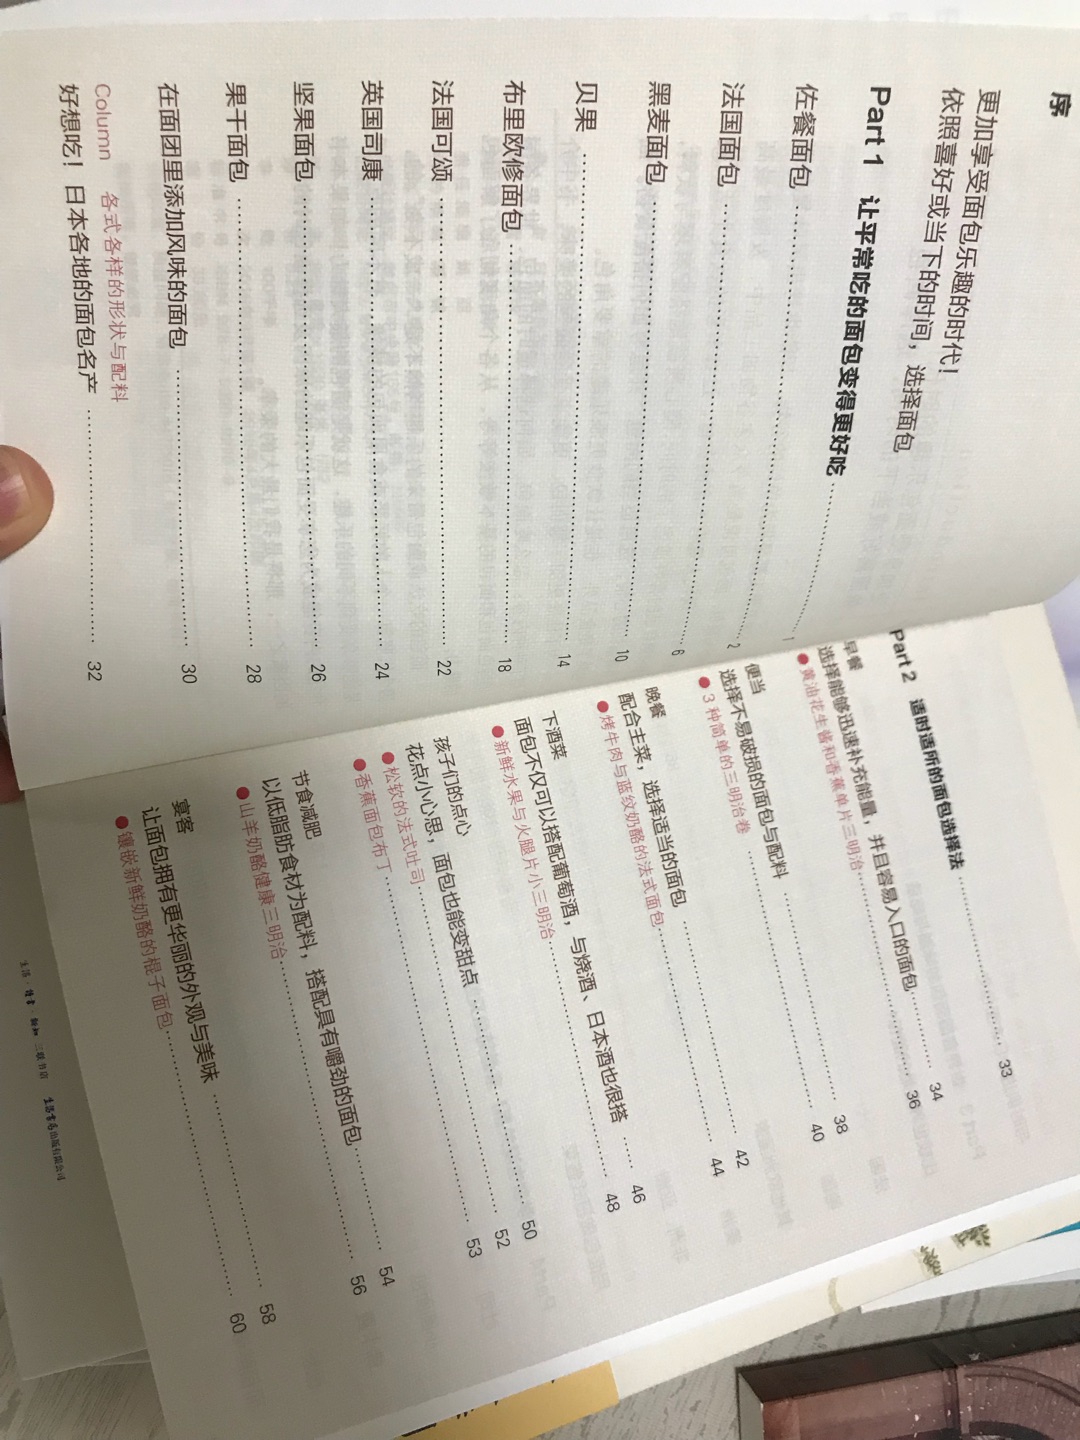 序
更加享受面包乐趣的时代！
依照喜好或当下的时间，选择面包
Part 1 让平常吃的面包变得更好吃 ………… 1
佐餐面包 ………… 2
法国面包 ………… 6
黑麦面包 ………… 10
贝果 ………… 14
布里欧修面包 ………… 18
法国可颂 ………… 22
英国司康 ………… 24
坚果面包 ………… 26
果干面包 ………… 28
在面团里添加风味的面包 ………… 30
Column 各式各样的形状与配料
好想吃！日本各地的面包名产 ………… 32
Part 2 适时适所的面包选择法 ………… 33
早餐
选择能够迅速补充能量，并且容易入口的面包 ………… 34
●黄油花生酱和香蕉单片三明治 ………… 36
便当
选择不易破损的面包与配料 ………… 38
●3 种简单的三明治卷 ………… 40
晚餐
配合主菜，选择适当的面包 ………… 42
●烤牛肉与蓝纹奶酪的法式面包 ………… 44
下酒菜
面包不仅可以搭配葡萄酒，与烧酒、日本酒也很搭 …… 46
●新鲜水果与火腿片小三明治 ………… 48
孩子们的点心
花点小心思，面包也能变甜点 ………… 50
●松软的法式吐司 ………… 52
●香蕉面包布丁 ………… 53
节食减肥
以低脂肪食材为配料，搭配具有嚼劲的面包 ………… 54
●山羊奶酪健康三明治 ………… 56
宴客
让面包拥有更华丽的外观与美味 ………… 58
●镶嵌新鲜奶酪的棍子面包 ………… 60
生活·读书·新知 三联书店 生活书店出版有限公司